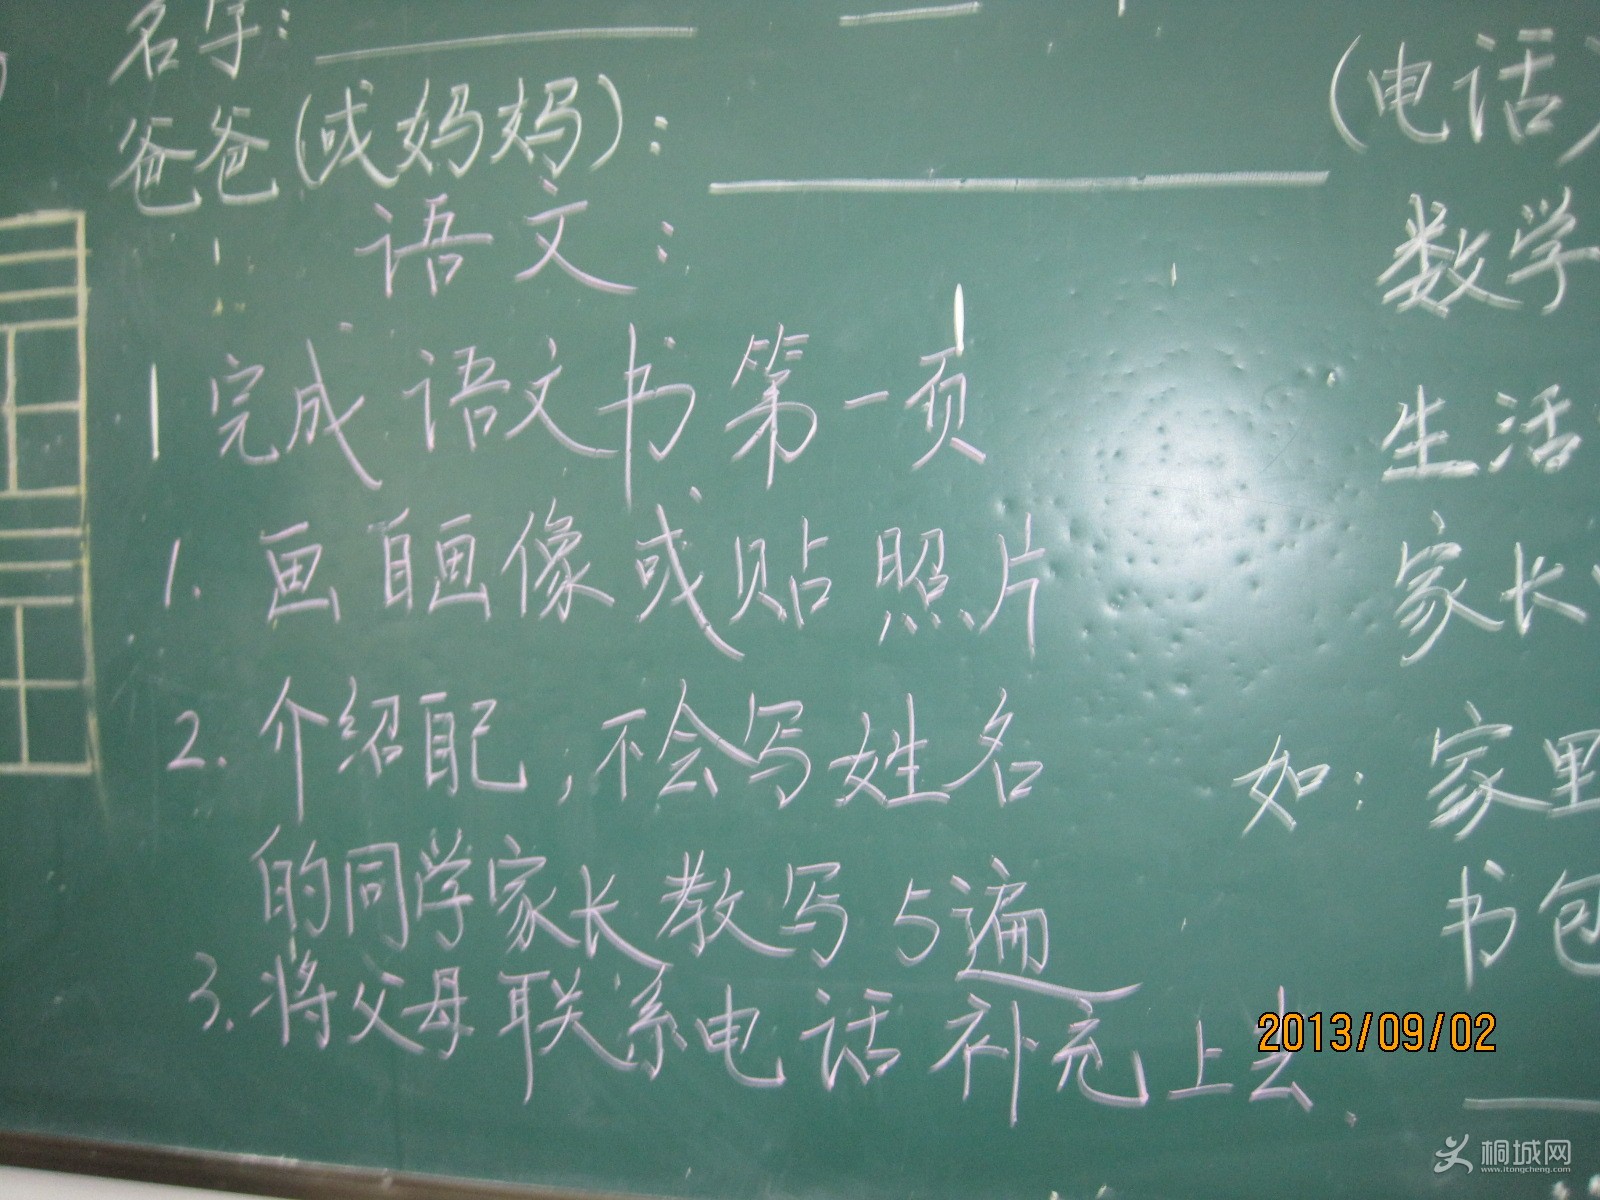 名字:
爸爸(或妈妈):
(电话)
语文:
数学
1 完成语文书第一页
生活
1. 画自画像或贴照片
家长
2. 介绍自己,不会写姓名
如: 家里
的同学家长教写5遍
书包
3. 将父母联系电话补充上去.
2013/09/02
桐城网
www.itongcheng.com